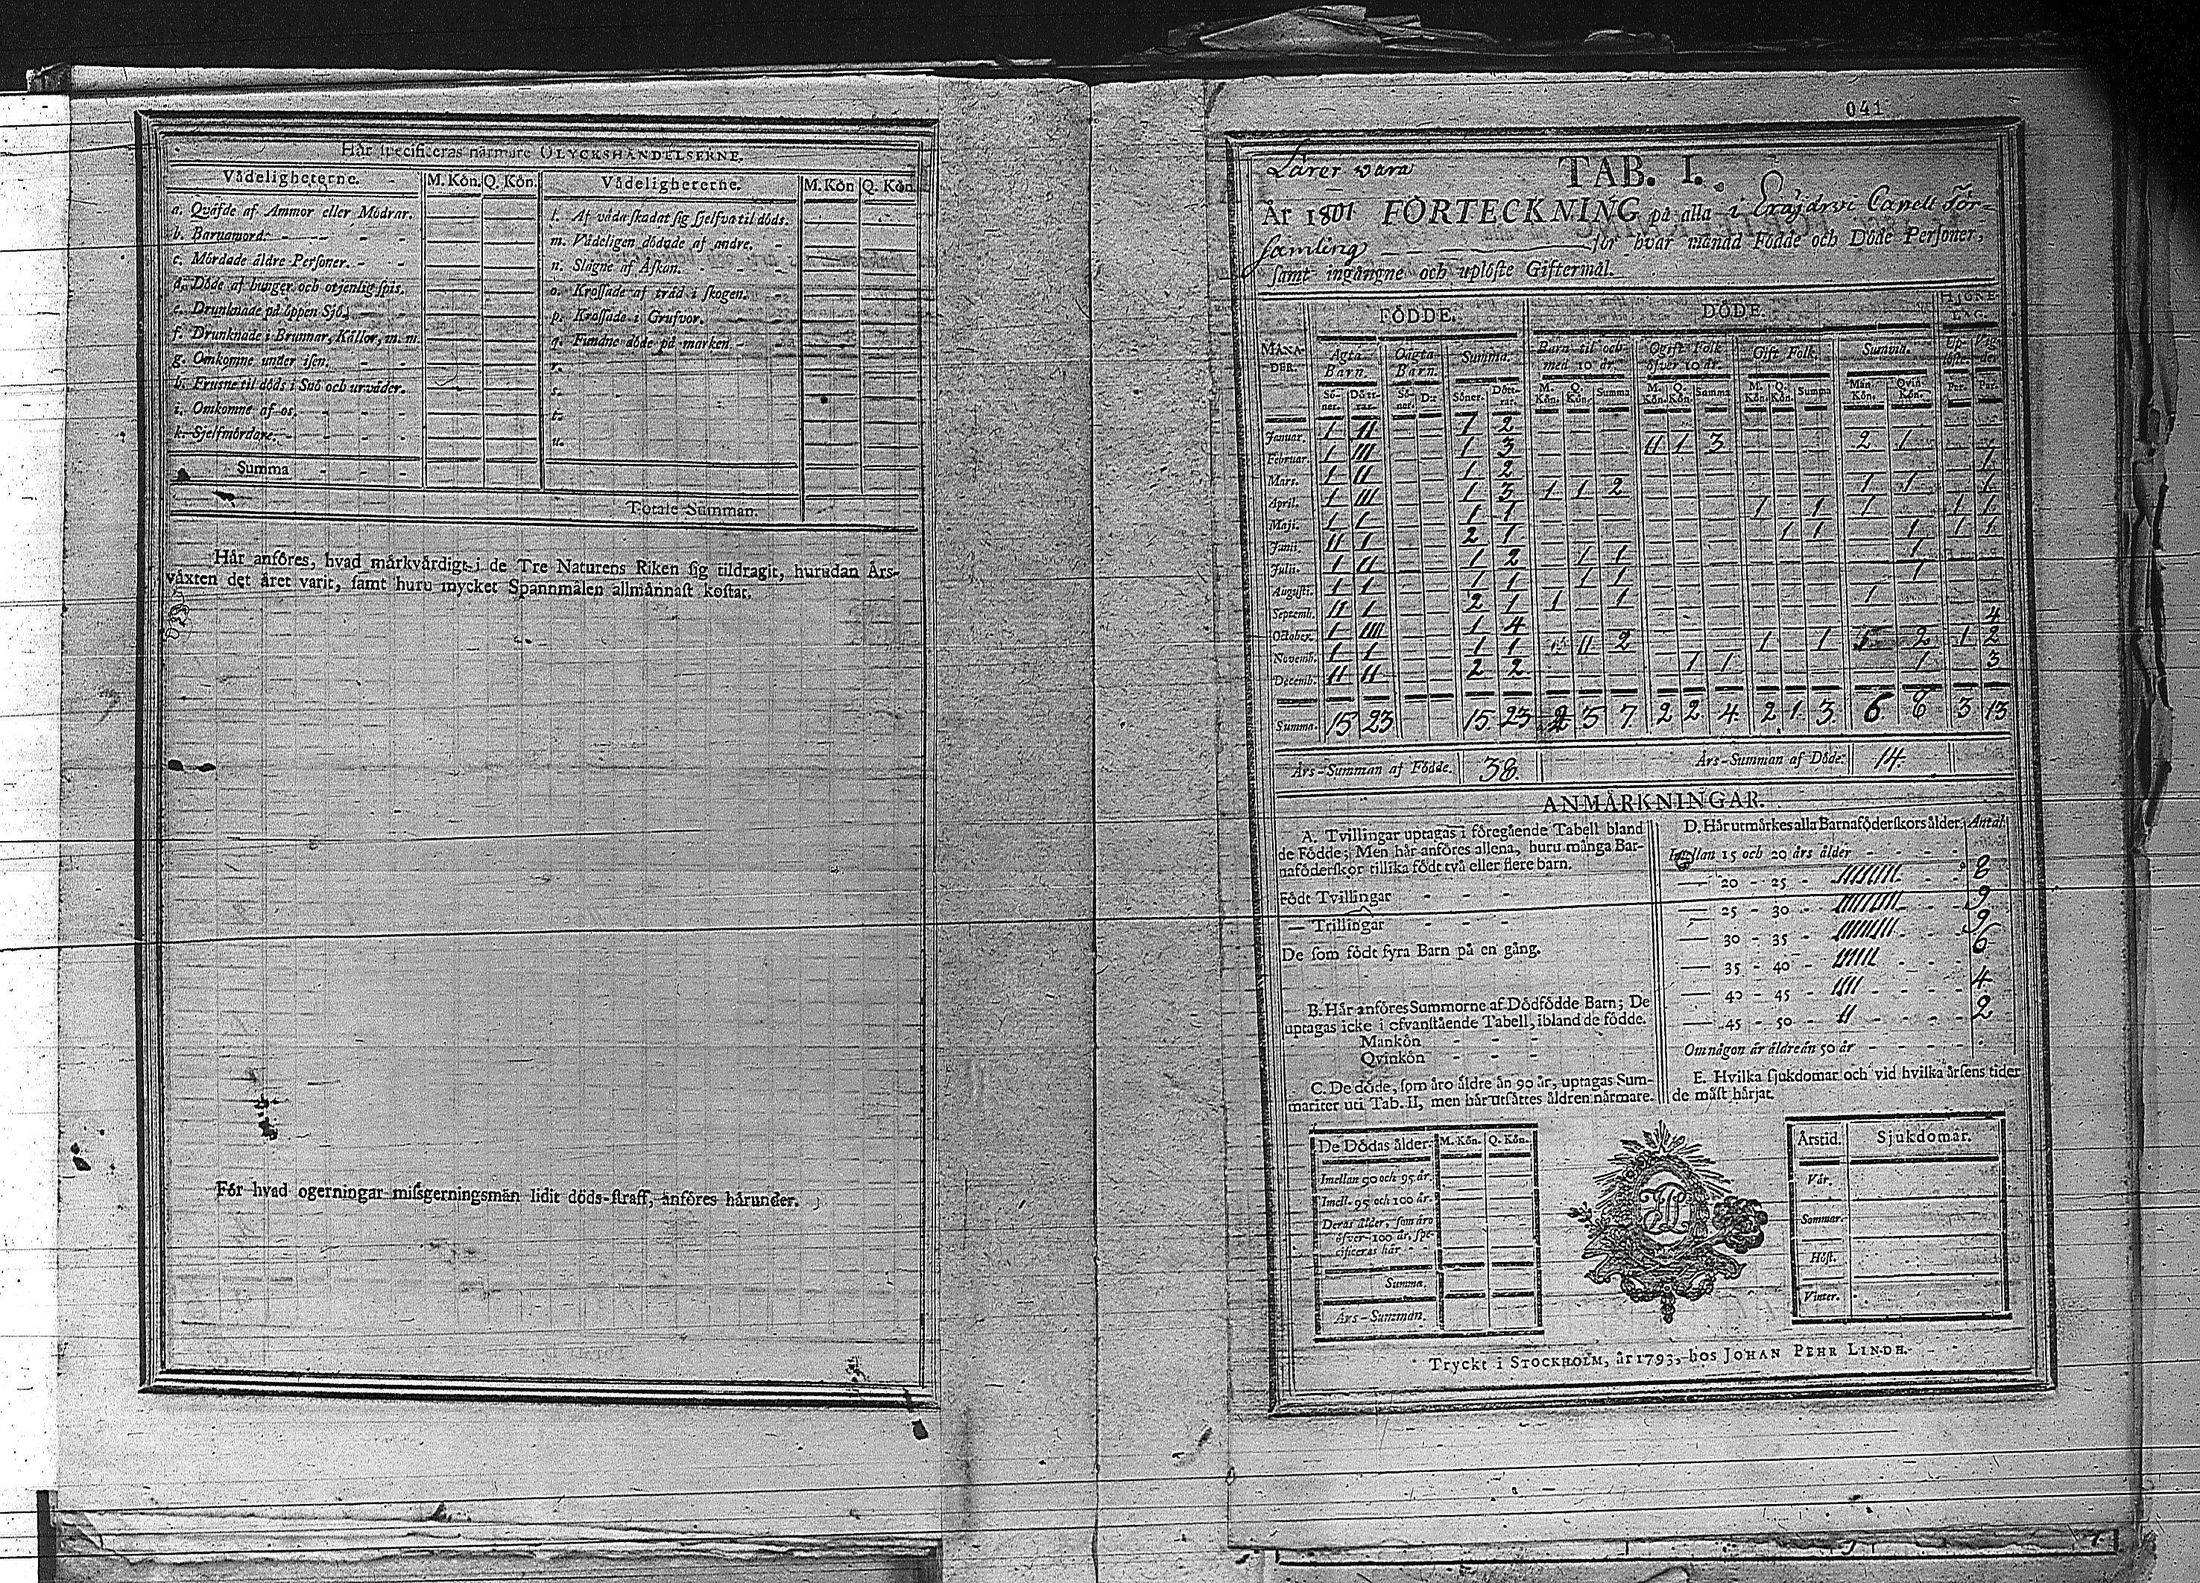 Hår specificeras närmare OLYCKSHÅNDELSERNE.
Vådeligheterne. M. Kön. Q. Kön. Vådeligheterne. M. Kön Q. Kön.
a. Qväfde af Ammor eller Mödrar. l. Af våda skadat sig sjelfva til döds.
b. Barnamord. m. Vådeligen dödade af andre.
c. Mördade äldre Personer. n. Slagne af Åskan.
d. Döde af hunger och otjenlig spis. o. Krossade af träd i skogen.
e. Drunknade på öppen Sjö. p. Krossade i Grufvor.
f. Drunknade i Brunnar, Källor, m. m. q. Fundne döde på marken
g. Omkomne under isen. r.
h. Frusne til döds i Snö och urväder. s.
i. Omkomne af os. t.
k. Sjelfmördare. u.
Summa
Totale Summan.
Hår anföres, hvad mårkvårdigt i de Tre Naturens Riken sig tildragit, hurudan Års-
våxten det året varit, samt huru mycket Spannmålen allmånnast kostat.
För hvad ogerningar missgerningsmän lidit döds-straff, anföres hårunder.
041
Lärer vara TAB. I.
År 1801 FÖRTECKNING på alla i Eräjärvi Capell För-
samling för hvar månad Födde och Döde Personer,
samt ingångne och uplöste Giftermål.
FÖDDE. DÖDE. HJONE-LAG.
MÅNA-DER. Ägta Barn. Oägta Barn. Summa. Barn til och med 10 år. Ogift Folk öfver 10 år. Gift Folk. Summa. Up-löste. Vig-der
Sö-ner. Dött-rar. Sö-ner. D:r Söner. Dött-rar. M. Kön. Q. Kön. Summa M. Kön. Q. Kön. Summa M. Kön. Q. Kön. Summa Män. Kön. Qvin. Kön. Par. Par.
Januar. 1 11 1 2
Februar. 1 111 1 3 11 1 3 2 1 1
Mars. 1 11 1 2 1
April. 1 111 1 3 1 1 2 1 1 1
Maji. 1 1 1 1 1 1 1 1 1
Junii. 11 1 2 1 1 1 1 1 1
Julii. 1 11 1 2 1 1 1
Augusti. 1 1 1 1 1 1 1
Septemb. 11 1 2 1 1 1 1
October. 1 1111 1 4 4
Novemb. 1 1 1 1 11 2 1 1 2 1 2
Decemb. 11 11 2 2 1 1 1 3
Summa. 15 23 15. 23 2 5 7. 2 2 4. 2 1. 3. 6. 8 3 13
Års-Summan af Födde. 38. Års-Summan af Döde. 14.
ANMÄRKNINGAR.
A. Tvillingar uptagas i föregående Tabell bland
de Födde; Men hår anföres allena, huru många Bar-
naföderskor tillika födt två eller flere barn.
Födt Tvillingar
— Trillingar
De som födt fyra Barn på en gång.
B. Hår anföres Summorne af Dödfödde Barn; De
uptagas icke i ofvanstående Tabell, ibland de födde.
Mankön
Qvinkön
C. De döde, som åro åldre ån 90 år, uptagas Sum-
mariter uti Tab. II, men hår utsåttes åldren nårmare.
De Dödas ålder. M. Kön. Q. Kön.
Imellan 90 och 95 år.
Imell. 95 och 100 år.
Deras ålder, som äro
öfver 100 år, spe-
cificeras här
Summa.
Års-Summan.
D. Hår utmårkes alla Barnaföderskors ålder. Antal
Imellan 15 och 20 års ålder
— 20 - 25 - 8
— 25 - 30 - 9
— 30 - 35 - 9
— 35 - 40 - 6
— 40 - 45 - 1111 4
— 45 - 50 - 11 2
Om någon är äldre än 50 år
E. Hvilka sjukdomar och vid hvilka årsens tider
de måst hårjat.
Årstid. Sjukdomar.
Vår.
Sommar.
Höst.
Vinter.
Tryckt i STOCKHOLM, år 1793, hos JOHAN PEHR LINDH.